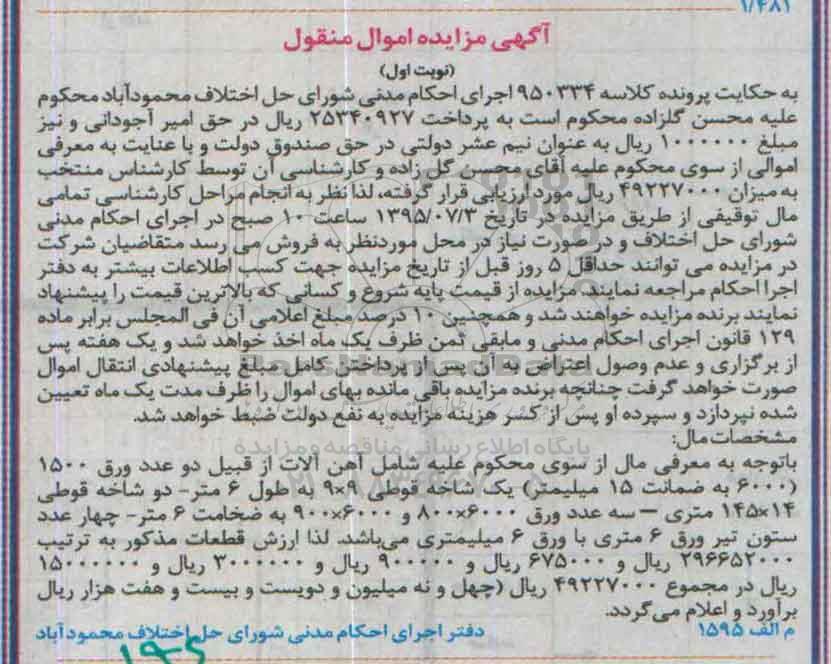 ۱/۴۸۲
آگهی مزایده اموال منقول
(نوبت اول)
به حکایت پرونده کلاسه ۹۵۰۳۳۴ اجرای احکام مدنی شورای حل اختلاف محمودآباد محکوم
علیه محسن گلزاده محکوم است به پرداخت ۲۵۳۴۰۹۲۷ ریال در حق امیر آجودانی و نیز
مبلغ ۱۰۰۰۰۰۰ ریال به عنوان نیم عشر دولتی در حق صندوق دولت و با عنایت به معرفی
اموالی از سوی محکوم علیه آقای محسن گل زاده و کارشناسی آن توسط کارشناس منتخب
به میزان ۴۹۲۲۷۰۰۰ ریال مورد ارزیابی قرار گرفته، لذا نظر به انجام مراحل کارشناسی تمامی
مال توقیفی از طریق مزایده در تاریخ ۱۳۹۵/۰۷/۳ ساعت ۱۰ صبح در اجرای احکام مدنی
شورای حل اختلاف و در صورت نیاز در محل موردنظر به فروش می رسد متقاضیان شرکت
در مزایده می توانند حداقل ۵ روز قبل از تاریخ مزایده جهت کسب اطلاعات بیشتر به دفتر
اجرا احکام مراجعه نمایند. مزایده از قیمت پایه شروع و کسانی که بالاترین قیمت را پیشنهاد
نمایند برنده مزایده خواهند شد و همچنین ۱۰ درصد مبلغ اعلامی آن فی المجلس برابر ماده
۱۲۹ قانون اجرای احکام مدنی و مابقی ثمن ظرف یک ماه اخذ خواهد شد و یک هفته پس
از برگزاری و عدم وصول اعتراض به آن پس از پرداختن کامل مبلغ پیشنهادی انتقال اموال
صورت خواهد گرفت چنانچه برنده مزایده باقی مانده بهای اموال را ظرف مدت یک ماه تعیین
شده نپردازد و سپرده او پس از کسر هزینه مزایده به نفع دولت ضبط خواهد شد.
مشخصات مال:
باتوجه به معرفی مال از سوی محکوم علیه شامل آهن آلات از قبیل دو عدد ورق ۱۵۰۰
(۶۰۰۰ به ضمانت ۱۵ میلیمتر) یک شاخه قوطی ۹×۹ به طول ۶ متر- دو شاخه قوطی
۱۴×۱۴۵ متری – سه عدد ورق ۶۰۰۰×۸۰۰ و ۶۰۰۰×۹۰۰ به ضخامت ۶ متر- چهار عدد
ستون تیر ورق ۶ متری با ورق ۶ میلیمتری می‌باشد. لذا ارزش قطعات مذکور به ترتیب
۲۹۶۶۵۲۰۰۰ ریال و ۶۷۵۰۰۰ ریال و ۹۰۰۰۰۰ ریال و ۳۰۰۰۰۰۰ ریال و ۱۵۰۰۰۰۰۰
ریال در مجموع ۴۹۲۲۷۰۰۰ ریال (چهل و نه میلیون و دویست و بیست و هفت هزار ریال
برآورد و اعلام می‌گردد.
م الف ۱۵۹۵ دفتر اجرای احکام مدنی شورای حل اختلاف محمودآباد